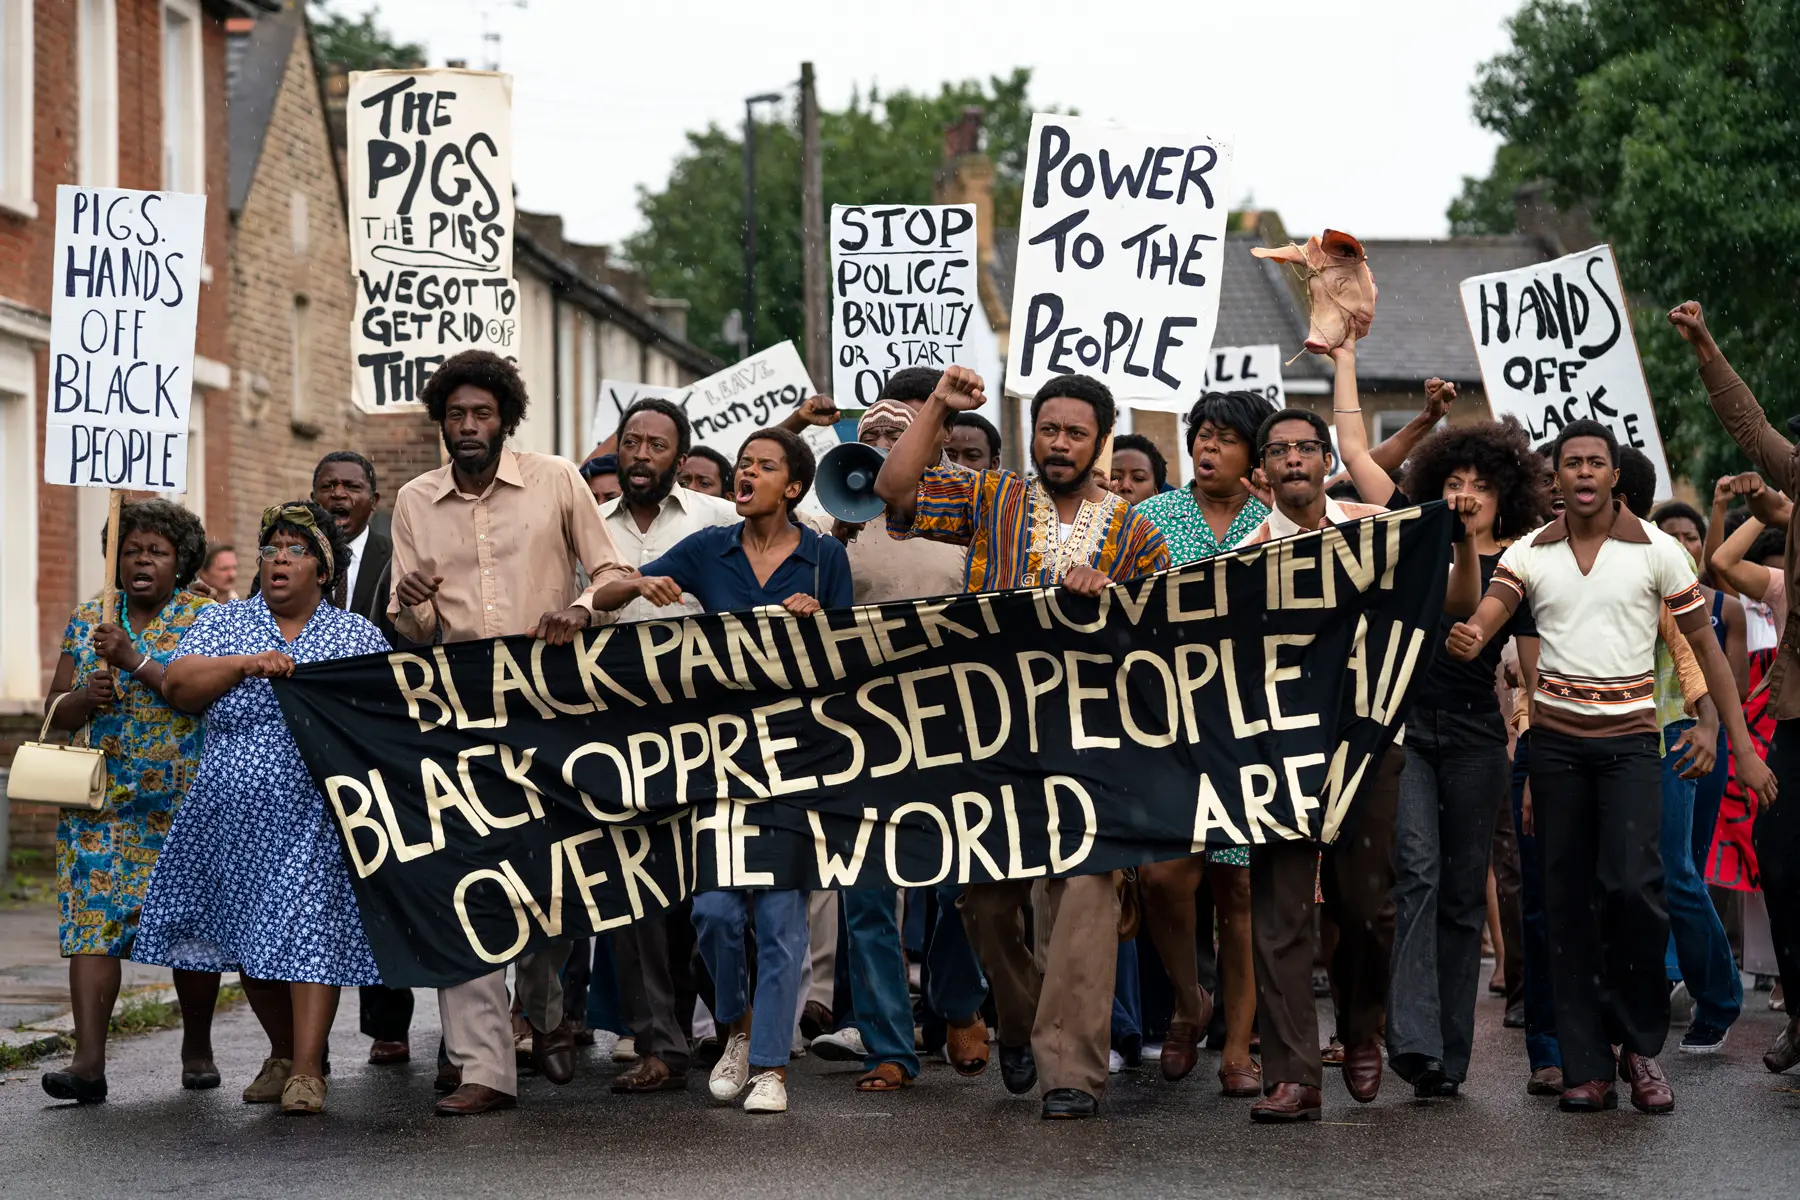 PIGS.
HANDS
OFF
BLACK
PEOPLE
THE
PIGS
THE PIGS
WE GOT TO
GET RID OF
THE
LEAVE
STOP
POLICE
BRUTALITY
OR START
POWER
TO THE
PEOPLE
HANDS
OFF
BLACK PANTHER MOVEMENT
BLACK OPPRESSED PEOPLE ALL
OVER THE WORLD